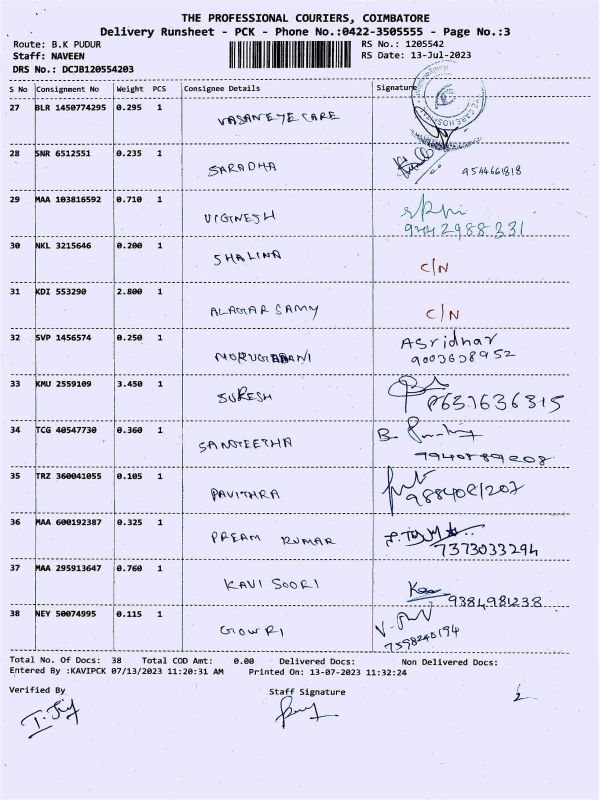 THE PROFESSIONAL COURIERS, COIMBATORE
Delivery Runsheet - PCK - Phone No.:0422-3505555 - Page No.:3
Route: B.K PUDUR RS No.: 1205542
Staff: NAVEEN RS Date: 13-Jul-2023
DRS No.: DCJB120554203
S No Consignment No Weight PCS Consignee Details Signature
27 BLR 1450774295 0.295 1 VASAN EYE CARE
28 SNR 6512551 0.235 1 SARADHA 9544661818
29 MAA 103816592 0.710 1 VIGINESH
9442988331
30 NKL 3215646 0.200 1 SHALINA C/N
31 KDI 553290 2.800 1 ALAGAR SAMY C/N
32 SVP 1456574 0.250 1 Asridhar
9003638952
33 KMU 2559109 3.450 1 SURESH 8637636815
34 TCG 40547730 0.360 1 SANGEETHA
35 TRZ 360041055 0.105 1 PAVITHRA
36 MAA 600192387 0.325 1 PREAM KUMAR
7373033294
37 MAA 295913647 0.760 1 KAVI SOORI
9384981238
38 NEY 50074995 0.115 1 GOWRI
7598240194
Total No. Of Docs: 38 Total COD Amt: 0.00 Delivered Docs: Non Delivered Docs:
Entered By :KAVIPCK 07/13/2023 11:20:31 AM Printed On: 13-07-2023 11:32:24
Verified By Staff Signature